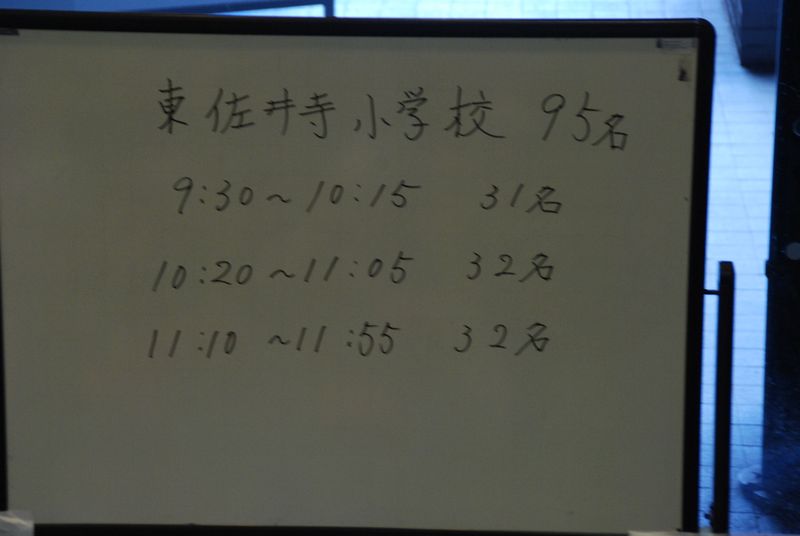 東佐井寺小学校 95名
9:30~10:15 31名
10:20~11:05 32名
11:10~11:55 32名